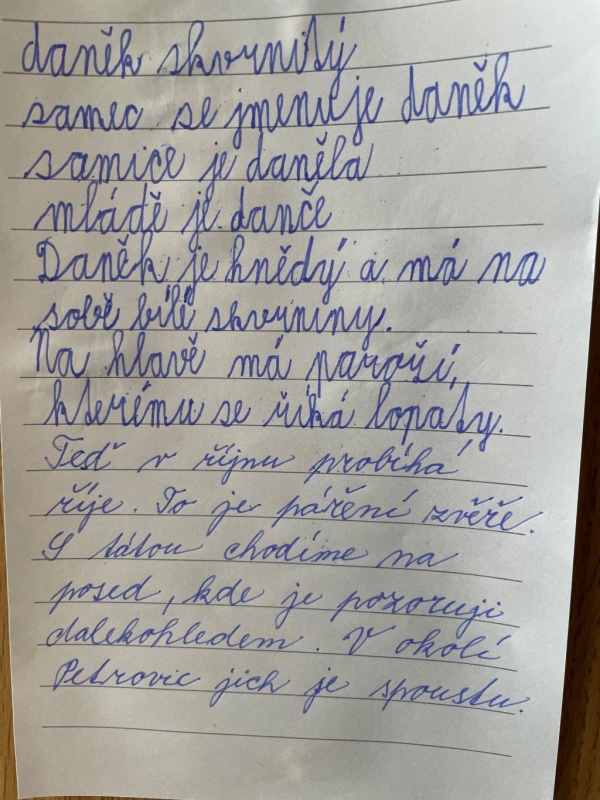 daněk skvrnitý
samec se jmenuje daněk
samice je daněla
mládě je danče
Daněk je hnědý a má na
sobě bílé skvrniny.
Na hlavě má paroží,
kterému se říká lopaty.
Teď v říjnu probíhá
říje. To je páření zvěře.
S tátou chodíme na
posed, kde je pozoruji
dalekohledem. V okolí
Petrovic jich je spoustu.